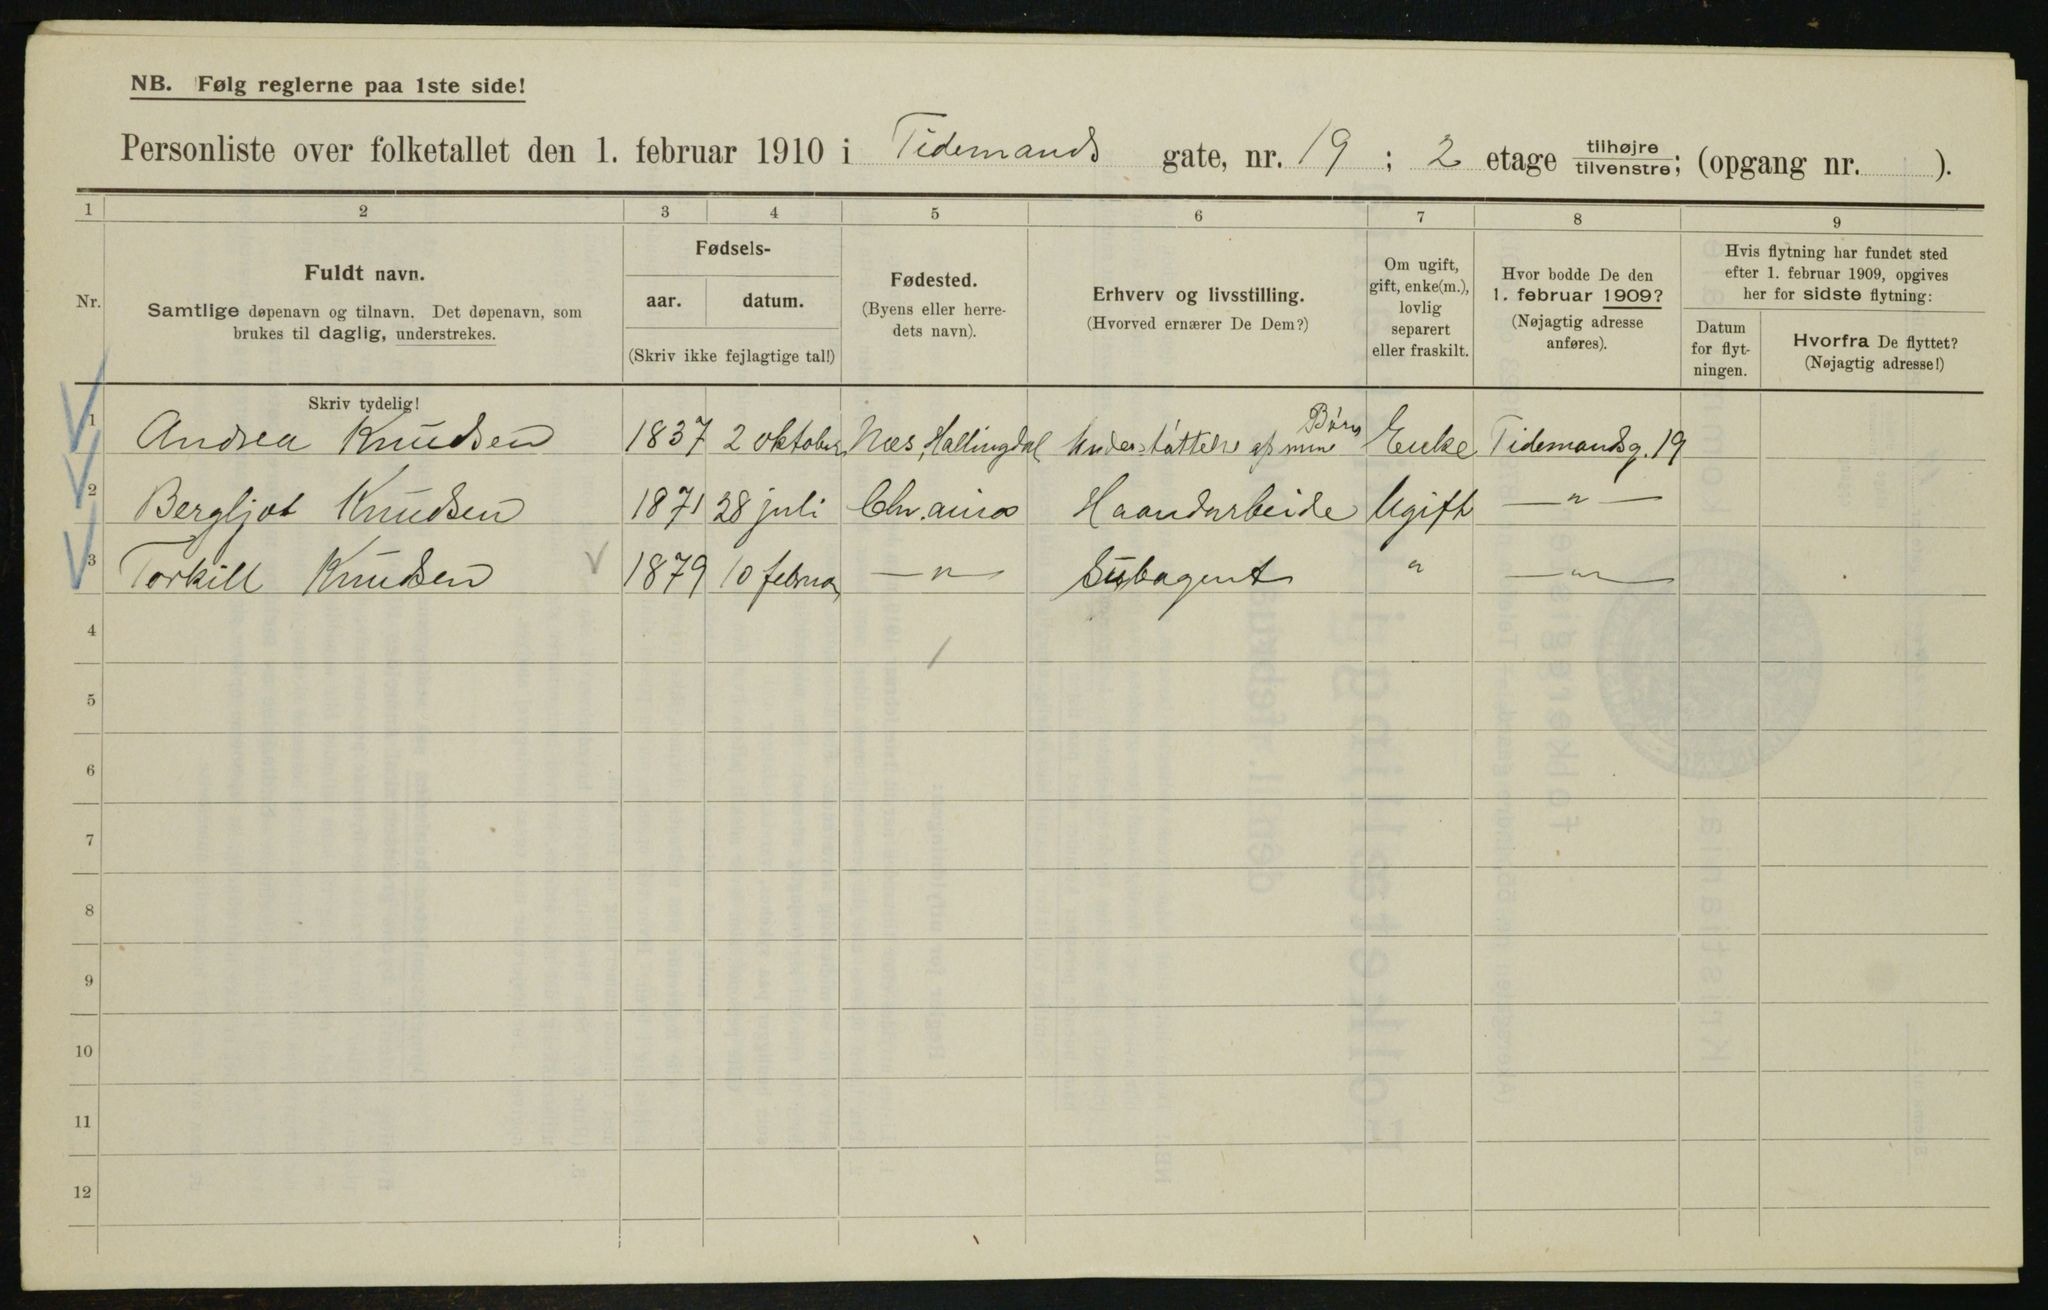 NB. Følg reglerne paa 1ste side!
Personliste over folketallet den 1. februar 1910 i Tidemands gate, nr. 19 ; 2 etage tilhøjre/tilvenstre; (opgang nr. ).
1 2 3 4 5 6 7 8 9
Nr.
Fuldt navn.
Samtlige døpenavn og tilnavn. Det døpenavn, som
brukes til daglig, understrekes.
Fødsels-
aar. datum.
(Skriv ikke fejlagtige tal!)
Fødested.
(Byens eller herre-
dets navn).
Erhverv og livsstilling.
(Hvorved ernærer De Dem?)
Om ugift,
gift, enke(m.),
lovlig
separert
eller fraskilt.
Hvor bodde De den
1. februar 1909?
(Nøjagtig adresse
anføres).
Hvis flytning har fundet sted
efter 1. februar 1909, opgives
her for sidste flytning:
Datum
for flyt-
ningen.
Hvorfra De flyttet?
(Nøjagtig adresse!)
Skriv tydelig!
1 Andrea Knudsen 1837 2 oktober Næs, Hallingdal Understøttelse af mine Børn Enke Tidemandsg. 19
2 Bergljot Knudsen 1871 28 juli Chr.ania Haandarbeide Ugift —"—
3 Torkill Knudsen 1879 10 februar —"— Subagent " —"—
4
5
6
7
8
9
10
11
12